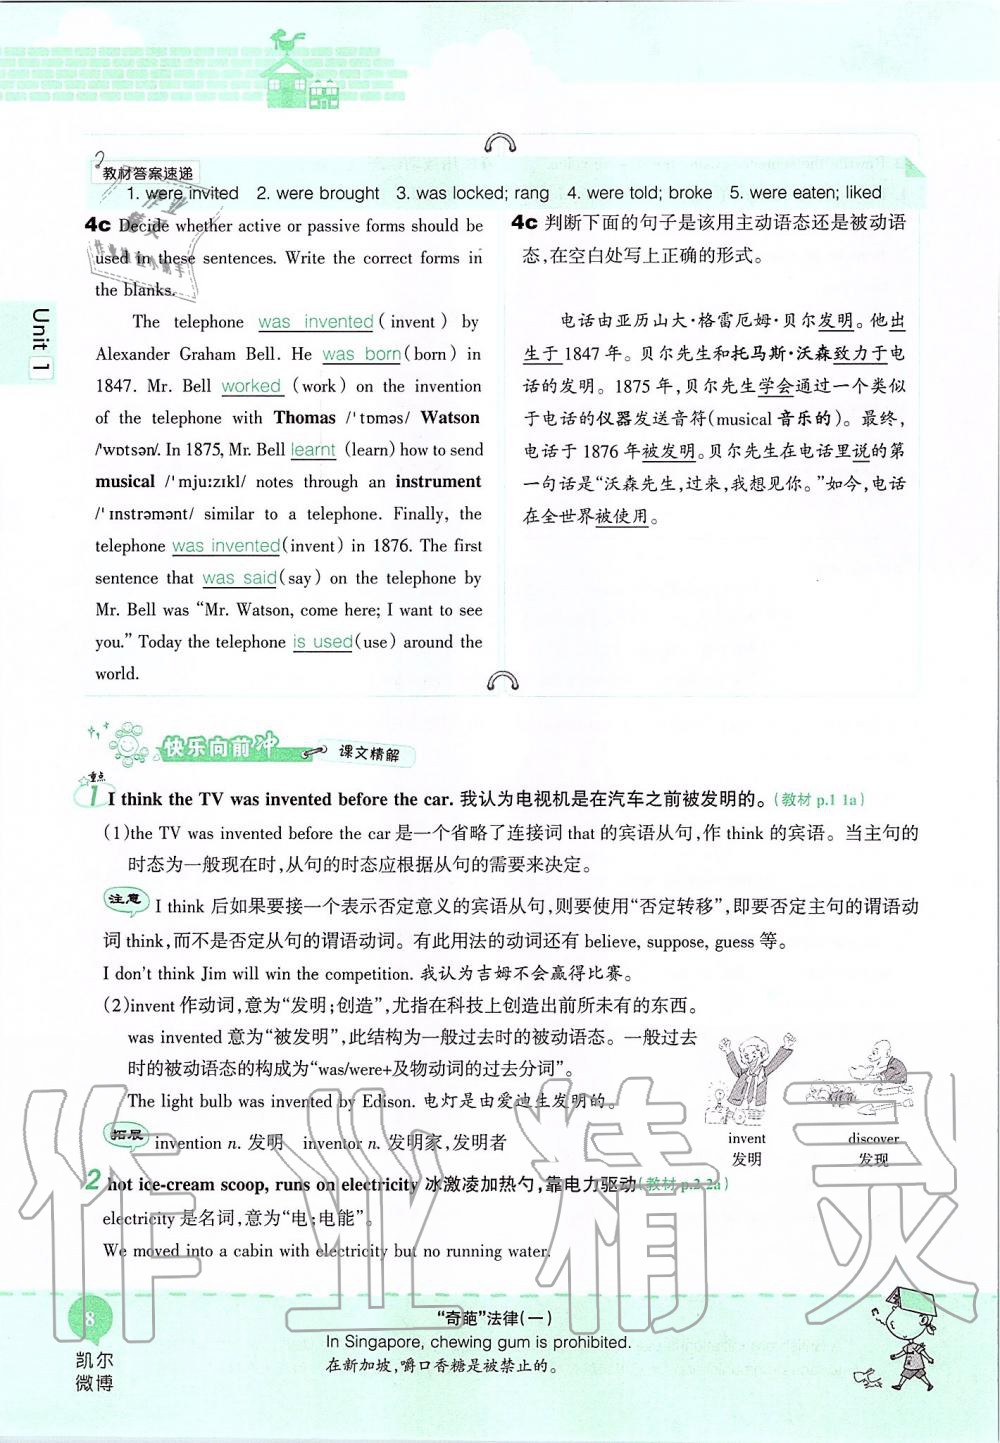 教材答案速递
1. were invited 2. were brought 3. was locked; rang 4. were told; broke 5. were eaten; liked
4c Decide whether active or passive forms should be
used in these sentences. Write the correct forms in
the blanks.
The telephone was invented (invent) by
Alexander Graham Bell. He was born (born) in
1847. Mr. Bell worked (work) on the invention
of the telephone with Thomas /ˈtɒməs/ Watson
/ˈwɒtsən/. In 1875, Mr. Bell learnt (learn) how to send
musical /ˈmjuːzɪkl/ notes through an instrument
/ˈɪnstrəmənt/ similar to a telephone. Finally, the
telephone was invented (invent) in 1876. The first
sentence that was said (say) on the telephone by
Mr. Bell was “Mr. Watson, come here; I want to see
you.” Today the telephone is used (use) around the
world.
4c 判断下面的句子是该用主动语态还是被动语
态,在空白处写上正确的形式。
电话由亚历山大·格雷厄姆·贝尔发明。他出
生于 1847 年。贝尔先生和托马斯·沃森致力于电
话的发明。1875 年,贝尔先生学会通过一个类似
于电话的仪器发送音符(musical 音乐的)。最终,
电话于 1876 年被发明。贝尔先生在电话里说的第
一句话是“沃森先生,过来,我想见你。”如今,电话
在全世界被使用。
Unit 1
快乐向前冲 课文精解
重点
1 I think the TV was invented before the car. 我认为电视机是在汽车之前被发明的。(教材 p.1 1a)
(1)the TV was invented before the car 是一个省略了连接词 that 的宾语从句,作 think 的宾语。当主句的
时态为一般现在时,从句的时态应根据从句的需要来决定。
注意 I think 后如果要接一个表示否定意义的宾语从句,则要使用“否定转移”,即要否定主句的谓语动
词 think,而不是否定从句的谓语动词。有此用法的动词还有 believe, suppose, guess 等。
I don't think Jim will win the competition. 我认为吉姆不会赢得比赛。
(2)invent 作动词,意为“发明;创造”,尤指在科技上创造出前所未有的东西。
was invented 意为“被发明”,此结构为一般过去时的被动语态。一般过去
时的被动语态的构成为“was/were+及物动词的过去分词”。
The light bulb was invented by Edison. 电灯是由爱迪生发明的。
拓展 invention n. 发明 inventor n. 发明家,发明者
invent
发明
discover
发现
2 hot ice-cream scoop, runs on electricity 冰激凌加热勺,靠电力驱动(教材 p.2 2a)
electricity 是名词,意为“电;电能”。
We moved into a cabin with electricity but no running water.
作业精灵
8
凯尔
微博
“奇葩”法律(一)
In Singapore, chewing gum is prohibited.
在新加坡,嚼口香糖是被禁止的。